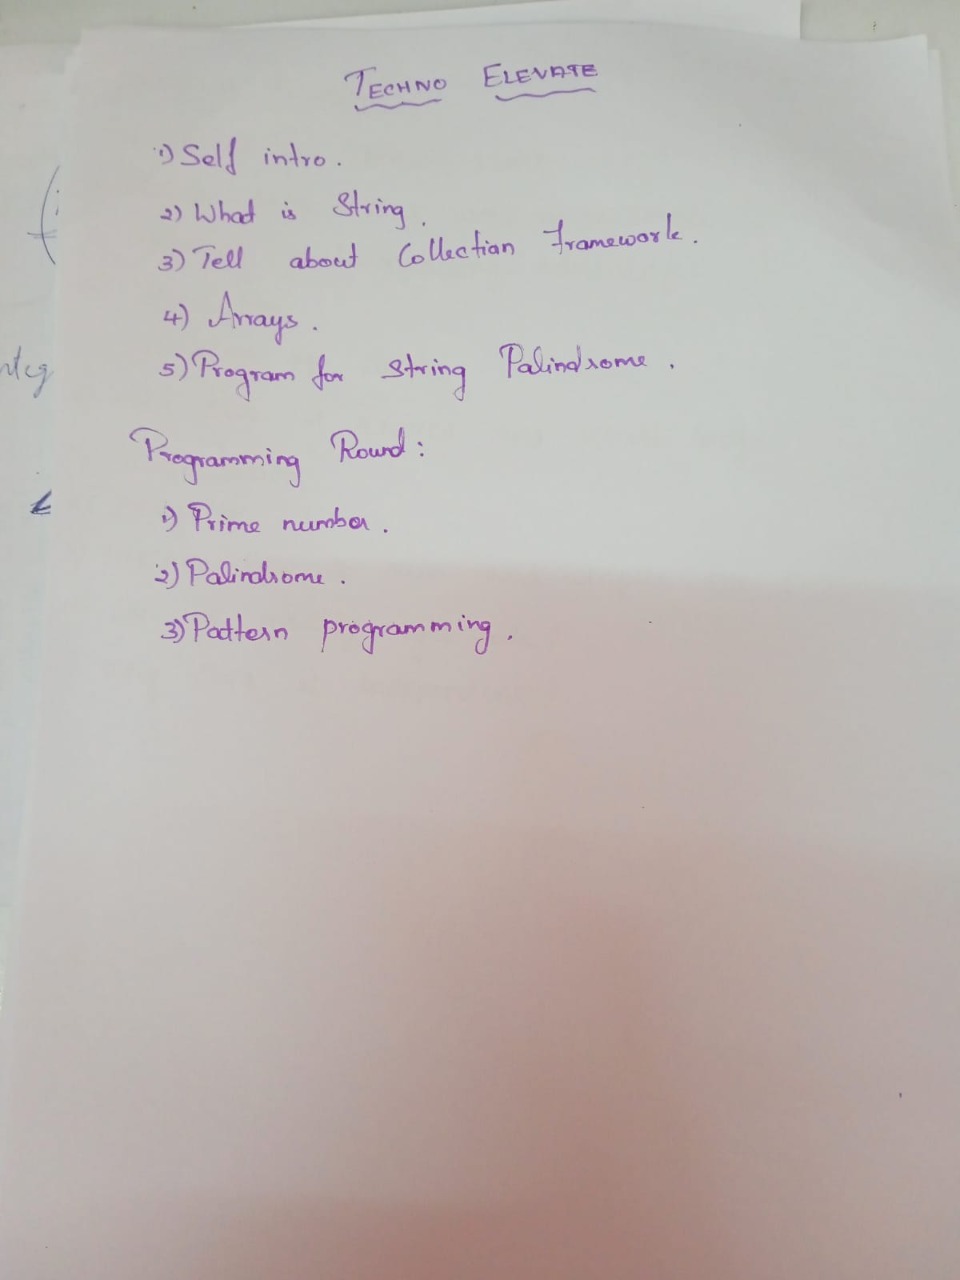 TECHNO ELEVATE
1) Self intro.
2) What is String.
3) Tell about Collection framework.
4) Arrays.
5) Program for String Palindrome.
Programming Round:
1) Prime number.
2) Palindrome.
3) Pattern programming.